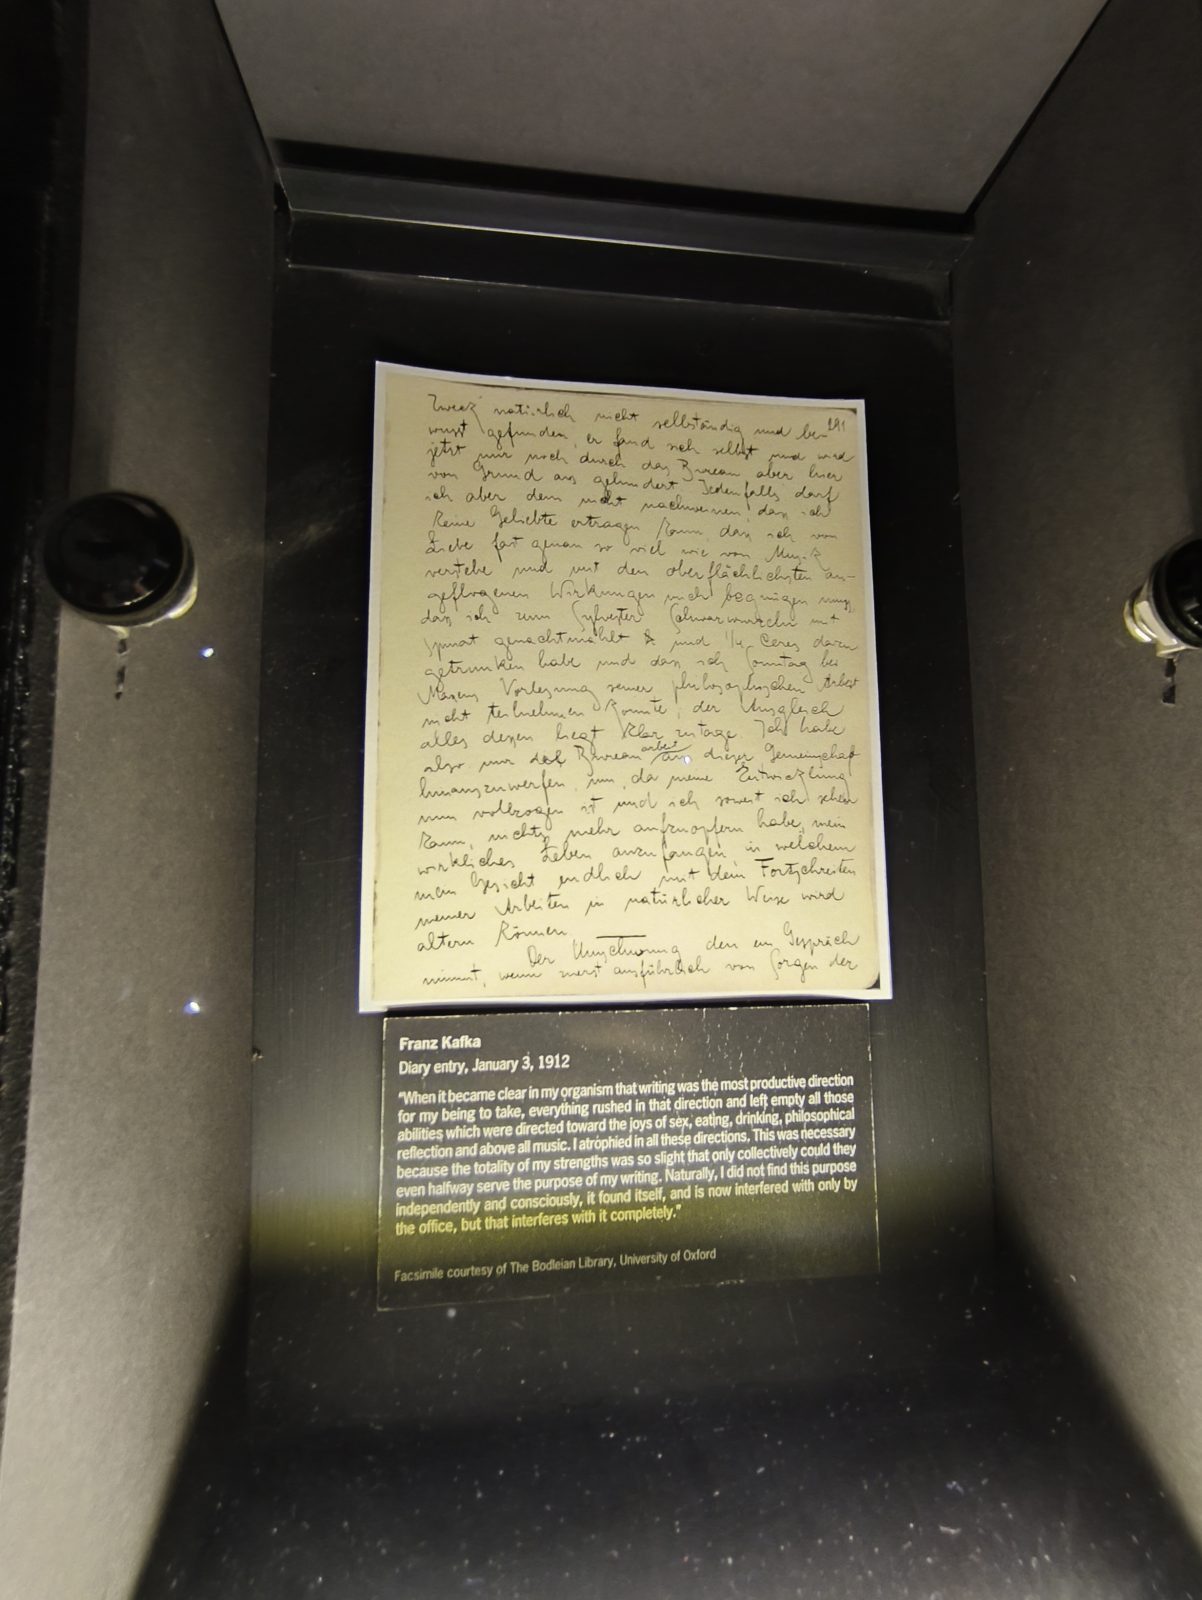 Zweck natürlich nicht selbständig und be- 191
wusst gefunden, er fand sich selbst und wird
jetzt nur noch durch das Bureau aber hier
von Grund aus gehindert. Jedenfalls darf
ich aber dem nicht nachweinen, dass ich
keine Geliebte ertragen kann, dass ich von
Liebe fast genau so viel wie von Musik
verstehe und mit den oberflächlichsten an-
geflogenen Wirkungen mich begnügen muss,
dass ich zum Sylvester Schwarzwurzeln mit
Spinat genachtmahlt und 1/4 Ceres dazu
getrunken habe und dass ich Sonntag bei
Maxens Vorlesung seiner philosophischen Arbeit
nicht teilnehmen konnte; der Ausgleich
alles dessen liegt klar zutage. Ich habe
also nur die Bureauarbeit aus dieser Gemeinschaft
hinauszuwerfen, um, da meine Entwicklung
nun vollzogen ist und ich soweit ich sehen
kann, nichts mehr aufzuopfern habe, mein
wirkliches Leben anzufangen, in welchem
mein Gesicht endlich mit dem Fortschreiten
meiner Arbeiten in natürlicher Weise wird
altern können.
Der Umschwung den ein Gespräch
nimmt, wenn zuerst ausführlich von Sorgen der
Franz Kafka
Diary entry, January 3, 1912
"When it became clear in my organism that writing was the most productive direction
for my being to take, everything rushed in that direction and left empty all those
abilities which were directed toward the joys of sex, eating, drinking, philosophical
reflection and above all music. I atrophied in all these directions. This was necessary
because the totality of my strengths was so slight that only collectively could they
even halfway serve the purpose of my writing. Naturally, I did not find this purpose
independently and consciously, it found itself, and is now interfered with only by
the office, but that interferes with it completely."
Facsimile courtesy of The Bodleian Library, University of Oxford